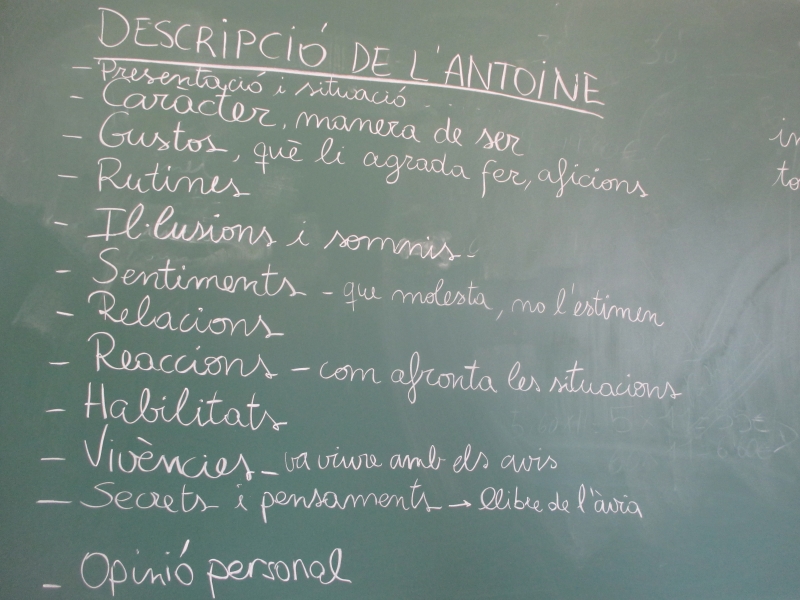 DESCRIPCIÓ DE L'ANTOINE
- Presentació i situació
- Caràcter, manera de ser
- Gustos, què li agrada fer, aficions
- Rutines
- Il·lusions i somnis
- Sentiments - que molesta, no l'estimen
- Relacions
- Reaccions - com afronta les situacions
- Habilitats
- Vivències - va viure amb els avis
- Secrets i pensaments → llibre de l'àvia
- Opinió personal